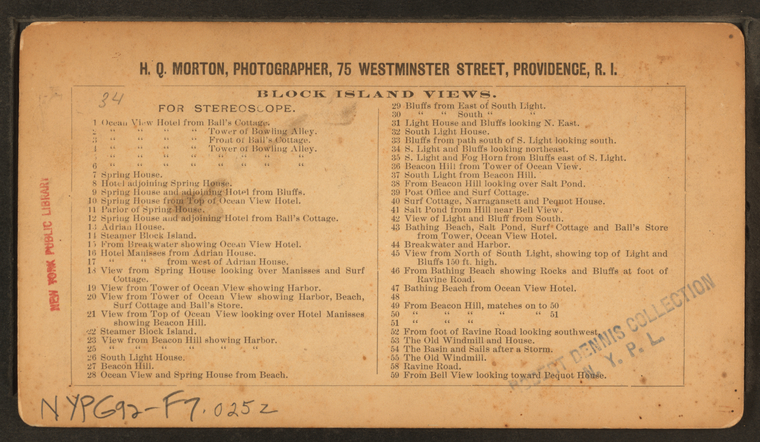 H. Q. MORTON, PHOTOGRAPHER, 75 WESTMINSTER STREET, PROVIDENCE, R. I.
BLOCK ISLAND VIEWS.
34
FOR STEREOSCOPE.
1 Ocean View Hotel from Ball's Cottage.
2 " " " " Tower of Bowling Alley.
3 " " " " Front of Ball's Cottage.
4 " " " " Tower of Bowling Alley.
" " " " " " " "
6 " " " " " " " "
7 Spring House.
8 Hotel adjoining Spring House.
9 Spring House and adjoining Hotel from Bluffs.
10 Spring House from Top of Ocean View Hotel.
11 Parlor of Spring House.
12 Spring House and adjoining Hotel from Ball's Cottage.
13 Adrian House.
14 Steamer Block Island.
15 From Breakwater showing Ocean View Hotel.
16 Hotel Manisses from Adrian House.
17 " " from west of Adrian House.
18 View from Spring House looking over Manisses and Surf
Cottage.
19 View from Tower of Ocean View showing Harbor.
20 View from Tower of Ocean View showing Harbor, Beach,
Surf Cottage and Ball's Store.
21 View from Top of Ocean View looking over Hotel Manisses
showing Beacon Hill.
22 Steamer Block Island.
23 View from Beacon Hill showing Harbor.
25 " " " " " "
26 South Light House.
27 Beacon Hill.
28 Ocean View and Spring House from Beach.
29 Bluffs from East of South Light.
30 " " South " "
31 Light House and Bluffs looking N. East.
32 South Light House.
33 Bluffs from path south of S. Light looking south.
34 S. Light and Bluffs looking northeast.
35 S. Light and Fog Horn from Bluffs east of S. Light.
36 Beacon Hill from Tower of Ocean View.
37 South Light from Beacon Hill.
38 From Beacon Hill looking over Salt Pond.
39 Post Office and Surf Cottage.
40 Surf Cottage, Narragansett and Pequot House.
41 Salt Pond from Hill near Bell View.
42 View of Light and Bluff from South.
43 Bathing Beach, Salt Pond, Surf Cottage and Ball's Store
from Tower, Ocean View Hotel.
44 Breakwater and Harbor.
45 View from North of South Light, showing top of Light and
Bluffs 150 ft. high.
46 From Bathing Beach showing Rocks and Bluffs at foot of
Ravine Road.
47 Bathing Beach from Ocean View Hotel.
48
49 From Beacon Hill, matches on to 50
50 " " " " " 51
51 " " "
52 From foot of Ravine Road looking southwest.
53 The Old Windmill and House.
54 The Basin and Sails after a Storm.
55 The Old Windmill.
58 Ravine Road.
59 From Bell View looking toward Pequot House.
NEW YORK PUBLIC LIBRARY
ROBERT DENNIS COLLECTION
N. Y. P. L.
NYPG92-F7.0252